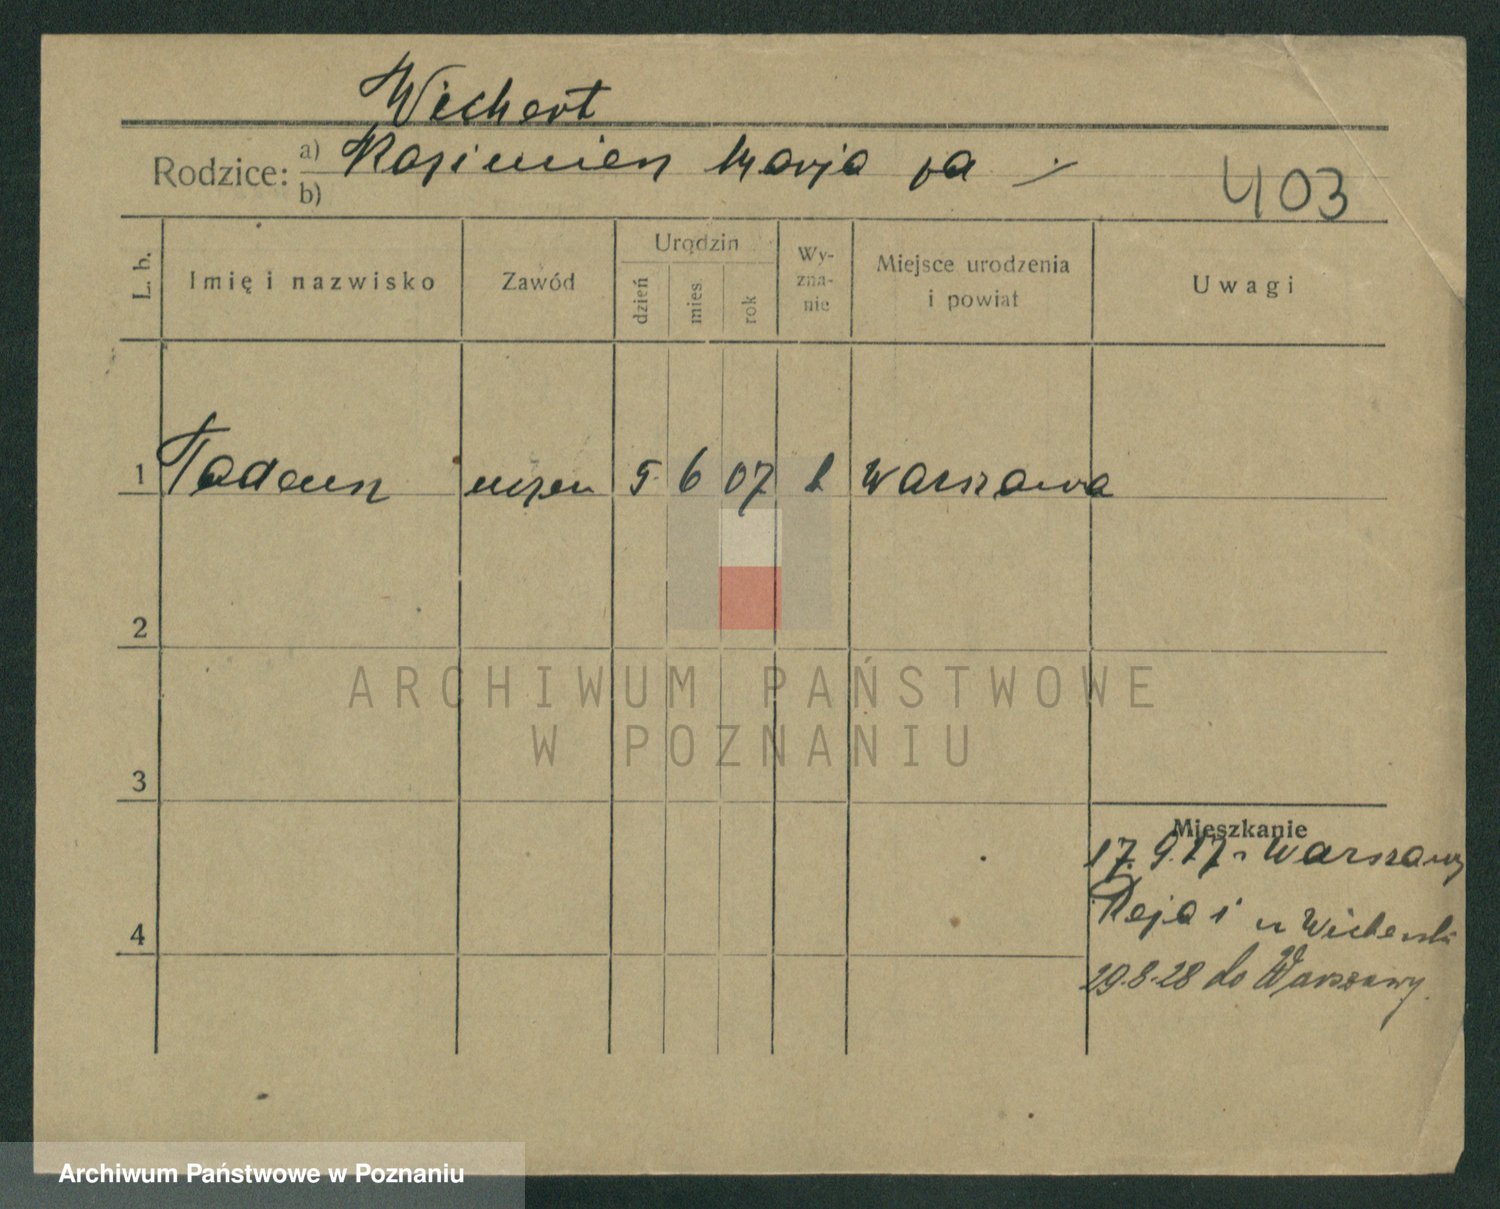 Wichert
Rodzice: a) Kazimierz Marja z d —
b)
403
L. b.
Imię i nazwisko
Zawód
Urodzin
dzień
mies.
rok
Wy-
zna-
nie
Miejsce urodzenia
i powiat
Uwagi
1 Tadeusz uczeń 5. 6 07 Warszawa
2
ARCHIWUM PAŃSTWOWE
W POZNANIU
3
Mieszkanie
17.9.27 z Warszawy
Reja 1 u
4
29.8.28 do Warszawy.
Archiwum Państwowe w Poznaniu